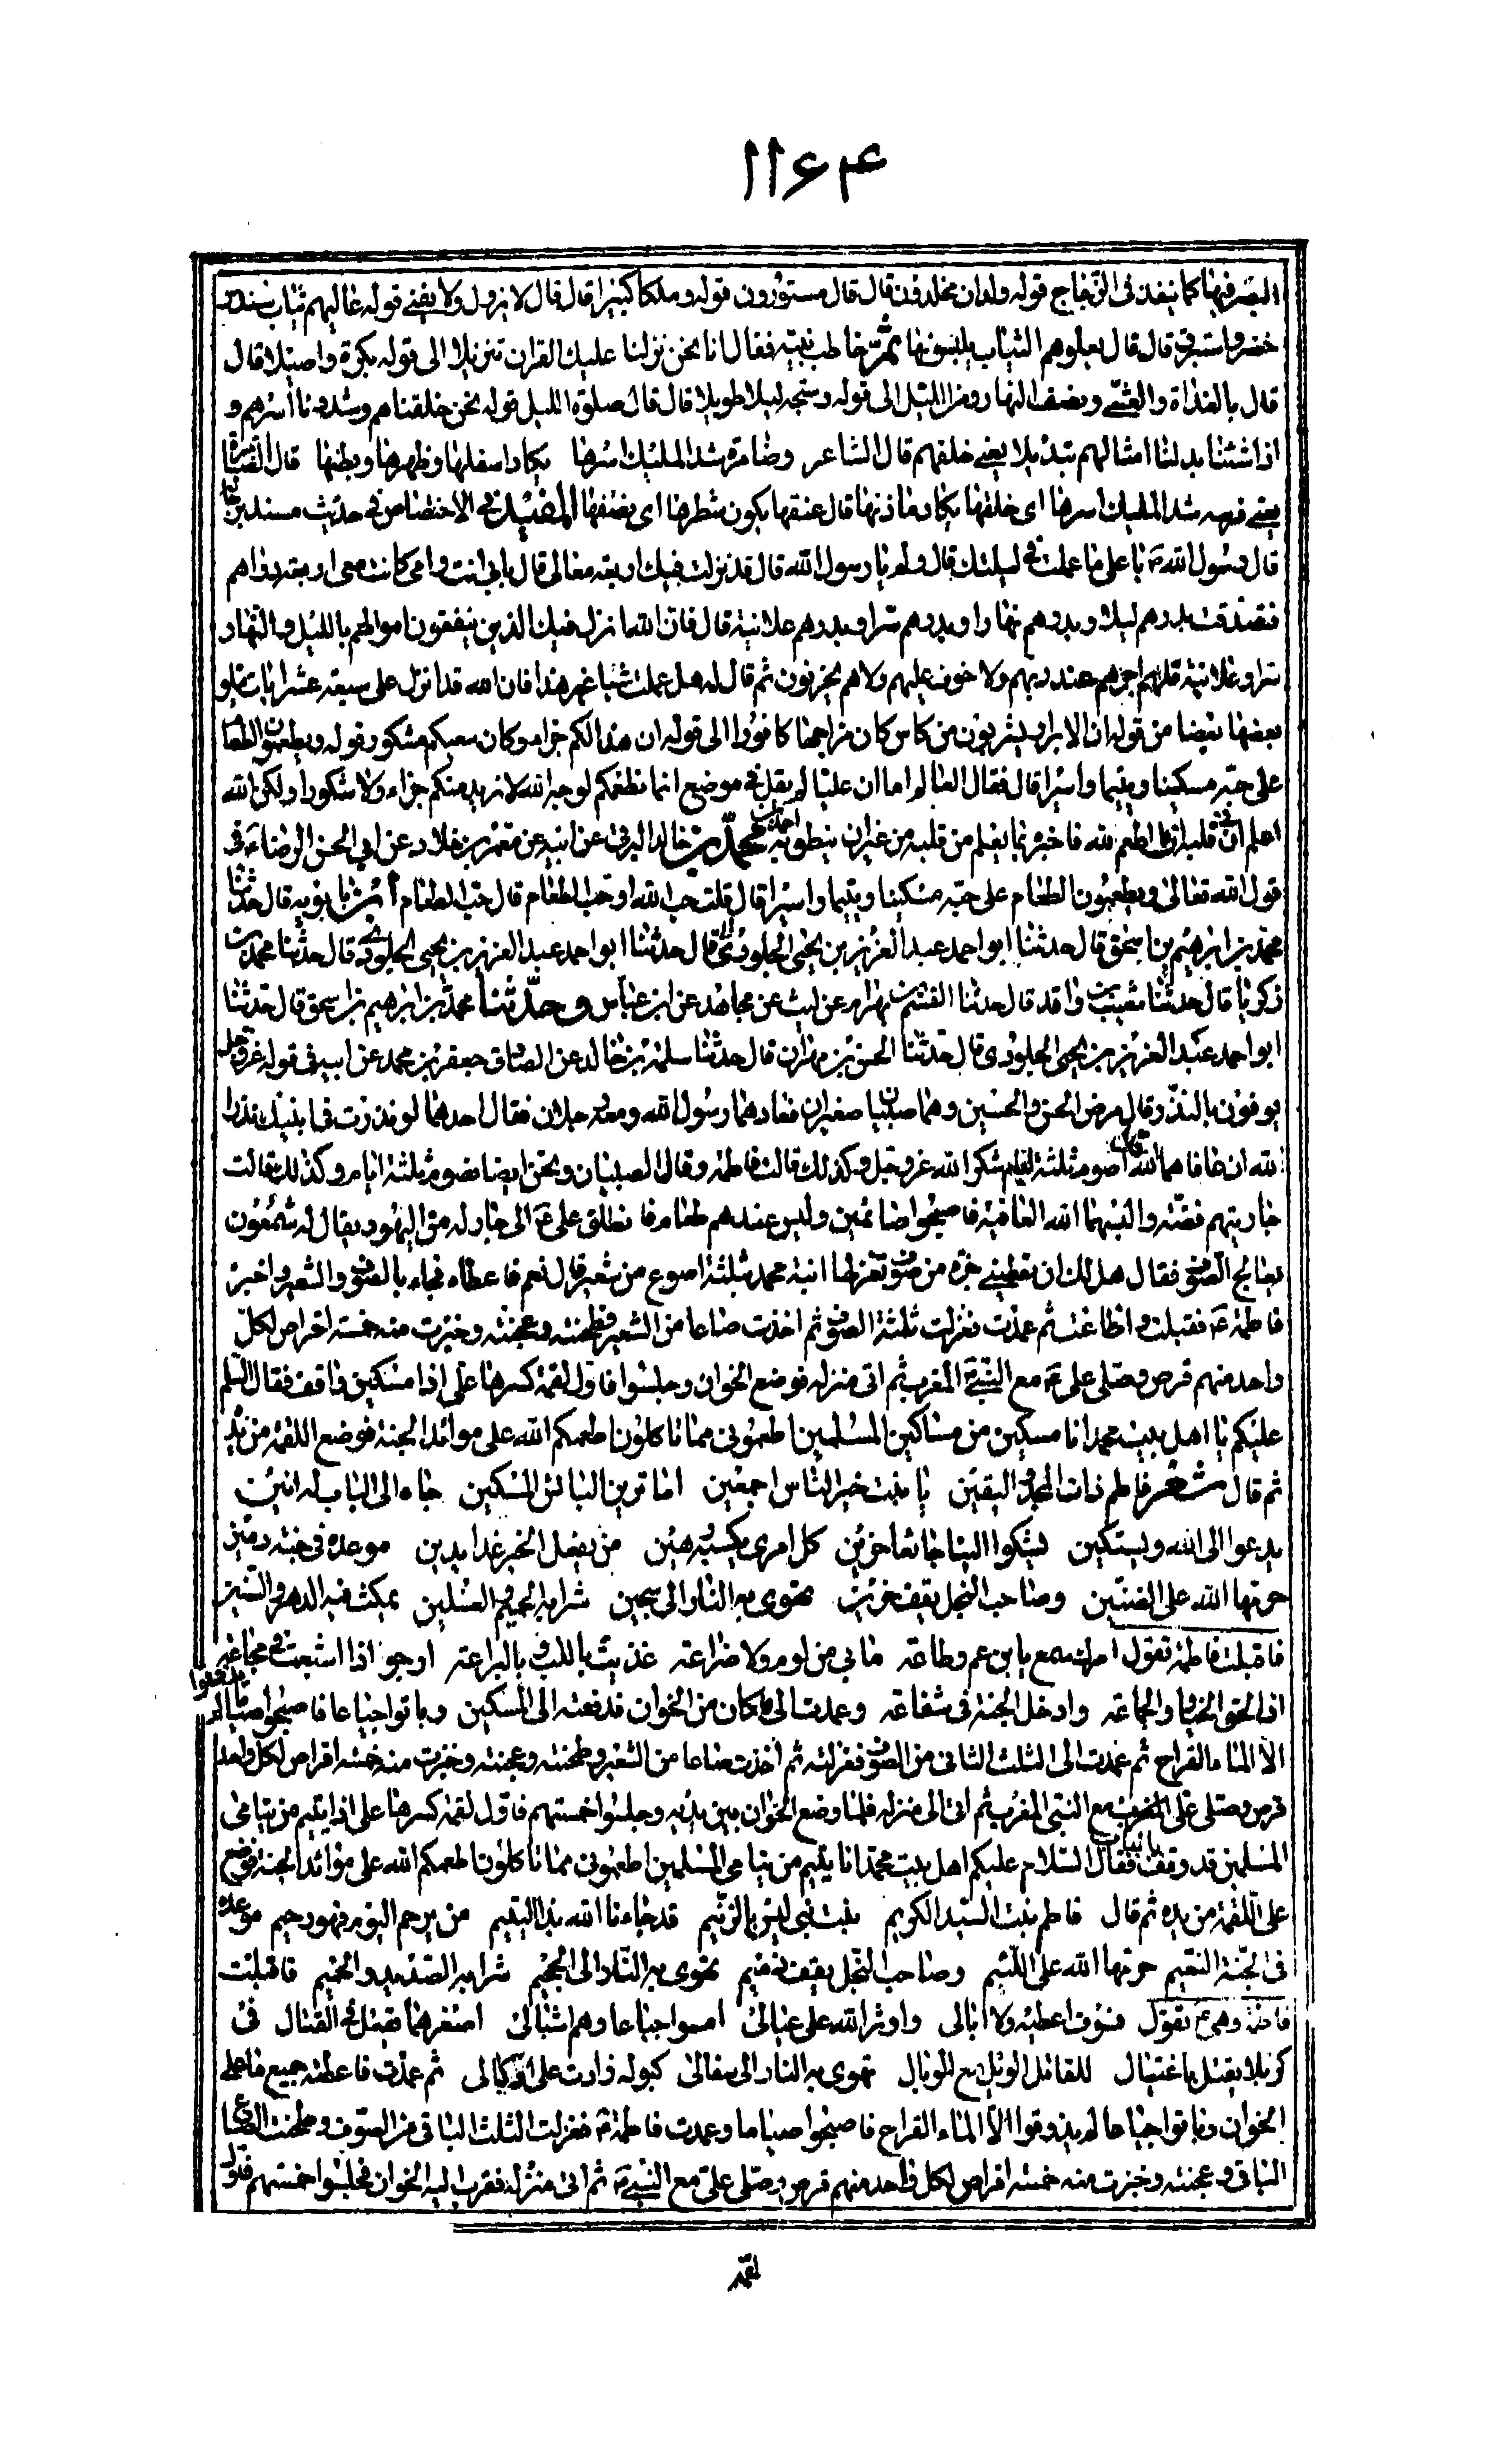 ١١۶۴
البصر فيها كما ينفذ فى الزجاج قوله ولدان مخلدون قال قال مستوورون قوله وملكا كبيرا قال قال لا يزول ولا يفنى قوله عاليهم ثياب سندس
خضر واستبرق قال قال يعلوهم الثياب يلبسونها ثم خاطب نبيه فقال انا نحن نزلنا عليك القران تنزيلا الى قوله بكرة واصيلا قال
قال بالغداة والعشى ونصف النهار ومن الليل الى قوله وسبحه ليلا طويلا قال قال صلوة الليل قوله نحن خلقناهم وشددنا أسرهم و
اذا شئنا بدلنا امثالهم تبديلا يعنى خلقهم قال الشاعر وضامرة شد المليك اسرها يكاد اسفلها وظهرها وبطنها قال الضامرة
يعنى فرسه شد المليك اسرها اى خلقها يكاد ماذنها قال عنقها يكون شطرها اى نصفها المفيد فى الاختصاص فى حديث مسند برجاله
قال رسول الله ص يا على ما عملت فى ليلتك قال ولم يا رسول الله قال قد نزلت فيك اربعة معالى قال بابى انت وامى كانت معى اربعة دراهم
فتصدقت بدرهم ليلا وبدرهم نهارا وبدرهم سرا وبدرهم علانية قال فان الله انزل فيك الذين ينفقون اموالهم بالليل والنهار
سرا وعلانية فلهم اجرهم عند ربهم ولا خوف عليهم ولا هم يحزنون ثم قال له هل عملت شيئا غير هذا فان الله قد انزل على سبعة عشر اية يتلو
بعضها بعضا من قوله ان الابرار يشربون من كاس كان مزاجها كافورا الى قوله ان هذا لكم جزاء وكان سعيكم مشكورا قوله ويطعمون الطعام
على حبه مسكينا ويتيما واسيرا قال فقال العالم اما ان عليا لم يقل فى موضع انما نطعمكم لوجه الله لا نريد منكم جزاء ولا شكورا ولكن الله
اعلم ان فى قلبه انما اطعم لله فاخبره بما يعلم من قلبه من غير ان ينطق به احمد بن محمد بن خالد البرقى عن ابيه عن معمر بن خلاد عن ابى الحسن الرضا ع فى
قول الله تعالى ويطعمون الطعام على حبه مسكينا ويتيما واسيرا قال قلت حب الله او حب الطعام قال حب الطعام ابن بابويه قال حدثنا
محمد بن ابراهيم بن اسحق قال حدثنا ابو احمد عبد العزيز بن يحيى الجلودى قال حدثنا ابو احمد عبد العزيز بن يحيى الجلودى قال حدثنا محمد بن
زكريا قال حدثنا شعيب بن واقد قال حدثنا القسم بن بهرام عن ليث عن مجاهد عن ابن عباس وحدثنا محمد بن ابرهيم بن اسحق قال حدثنا
ابو احمد عبد العزيز بن يحيى الجلودى قال حدثنا الحسن بن مهران قال حدثنا سلمة بن خالد عن الصادق جعفر بن محمد عن ابيه فى قوله عز وجل
يوفون بالنذر قال مرض الحسن والحسين وهما صبيان صغيران فعادهما رسول الله ومعه رجلان فقال احدهما لو نذرت فى ابنيك نذرا
لله ان عافاهما الله قال اصوم ثلثة ايام شكرا لله عز وجل وكذلك قالت فاطمة وقال الصبيان ونحن ايضا نصوم ثلثة ايام وكذلك قالت
جاريتهم فضة والبسهما الله العافية فاصبحوا صائمين وليس عندهم طعام فانطلق على ع الى جار له من اليهود يقال له شمعون
يعالج الصوف فقال هل لك ان تعطينى جزة من صوف تغزلها ابنة محمد بثلثة اصوع من شعير قال نعم فاعطاه فجاء بالصوف والشعير واخبر
فاطمة ع فقبلت واطاعت ثم عمدت فغزلت ثلثة الصوف ثم اخذت صاعا من الشعير فطحنته وعجنته وخبزت منه خمسة اقراص لكل
واحد منهم قرص وصلى على ع مع النبى ص المغرب ثم اتى منزله فوضع الخوان وجلسوا فاول لقمة كسرها على اذا مسكين واقف فقال السلم
عليكم يا اهل بيت محمد انا مسكين من مساكين المسلمين اطعمونى مما تاكلون اطعمكم الله على موائد الجنة فوضع اللقمة من يده
ثم قال شعر فاطم ذات المجد واليقين يا بنت خير الناس اجمعين اما ترين البائس المسكين جاء الى الباب له انين
يدعوا الى الله ويستكين يشكوا الينا جائعا حزين كل امرئ بكسبه رهين من يفعل الخير غدا يدين موعده فى جنة رمين
حرمها الله على الضنين وصاحب البخل يقف حزين تهوى به النار الى سجين شرابه الحميم والغسلين يمكث فيه الدهر والسنين
فاقبلت فاطمة تقول امرك سمع يا بن عم وطاعة ما بى من لوم ولا ضراعة غذيت باللب وبالبراعة ارجو اذا اشبعت فى مجاعة
ان الحق الخيار والجماعة وادخل الجنة فى شفاعة وعمدت الى ما كان من الخوان فدفعته الى المسكين وباتوا جياعا فاصبحوا صياما لم يذوقوا
الا الماء القراح ثم عمدت الى الثلث الثانى من الصوف فغزلته ثم اخذت صاعا من الشعير وطحنته وعجنته وخبزت منه خمسة اقراص لكل واحد
قرص وصلى على المغرب مع النبى المغرب ثم اتى الى منزله فلما وضع الخوان بين يديه وجلسوا خمستهم فاول لقمة كسرها على اذا يتيم من يتامى
المسلمين قد وقف بالباب فقال السلام عليكم اهل بيت محمد انا يتيم من يتامى المسلمين اطعمونى مما تاكلون اطعمكم الله على موائد الجنة فوضع
على اللقمة من يده ثم قال فاطم بنت السيد الكريم بنت نبى ليس بالزنيم قد جاءنا الله بذا اليتيم من يرحم اليوم فهو رحيم موعده
فى الجنة النعيم حرمها الله على اللئيم وصاحب البخل يقف ذميم تهوى به النار الى الجحيم شرابه الصديد والحميم فاقبلت
فاطمة وهى ع تقول فسوف اعطيه ولا ابالى واوثر الله على عيالى امسوا جياعا وهم اشبالى اصغرهما يقتل فى القتال فى
كربلا يقتل باغتيال للقاتل الويل مع الوبال تهوى به النار الى سفالى كبوله زادت على الاكبالى ثم عمدت فاعطته جميع ما على
الخوان وباتوا جياعا لم يذوقوا الا الماء القراح فاصبحوا صياما وعمدت فاطمة ع فغزلت الثلث الباقى من الصوف وطحنت الصاع
الباقى وعجنته وخبزت منه خمسة اقراص لكل واحد منهم قرص وصلى على مع النبى ص ثم اتى منزله فقرب اليه الخوان فجلسوا خمستهم فاول
لقمة